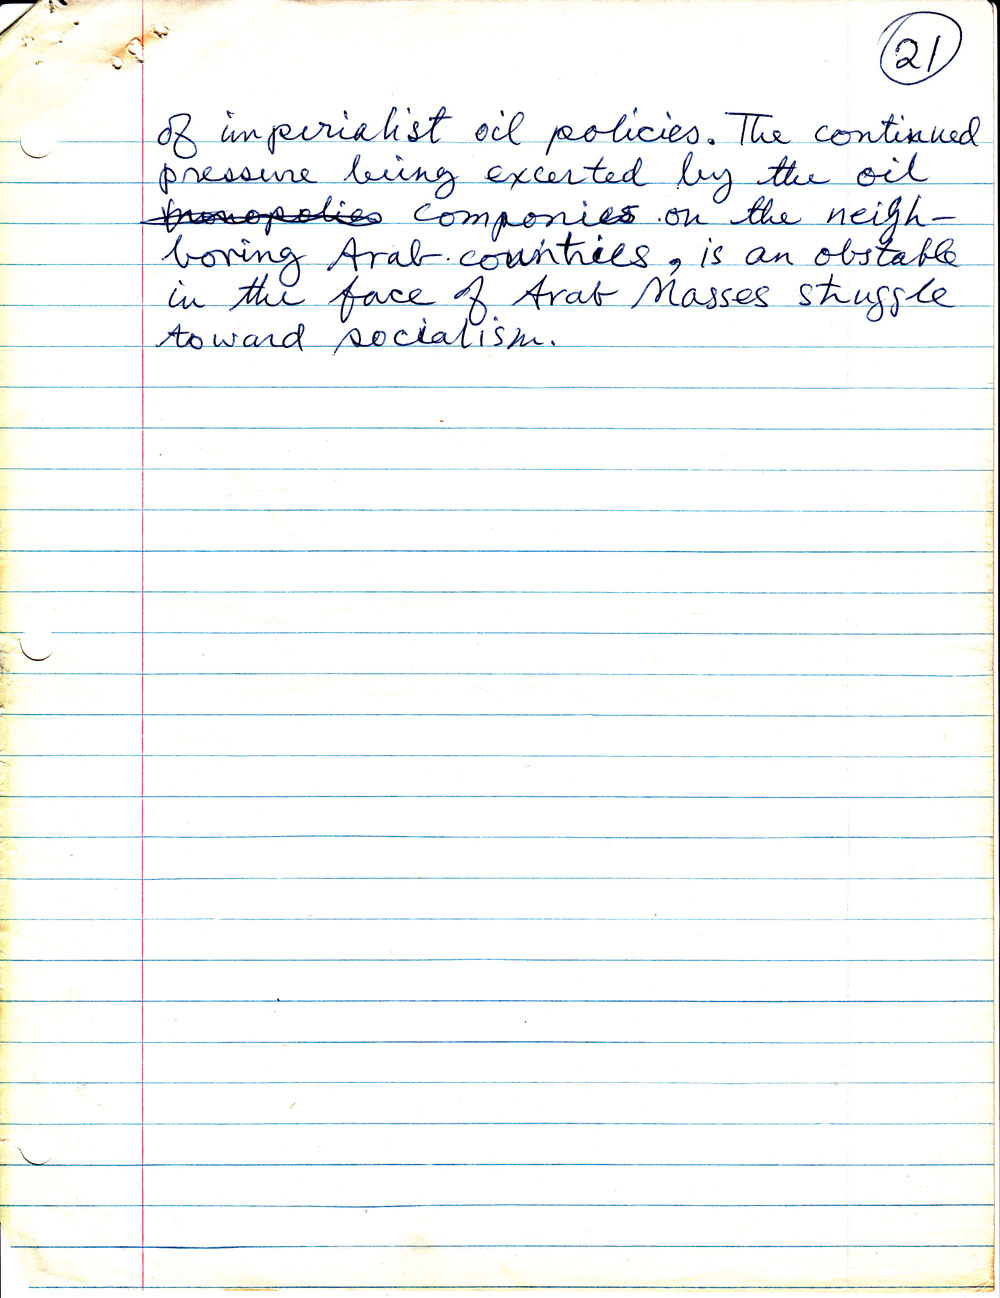 21
of imperialist oil policies. The continued
pressure being excerted by the oil
monopolies companies on the neigh-
boring Arab countries, is an obstable
in the face of Arab Masses struggle
toward socialism.